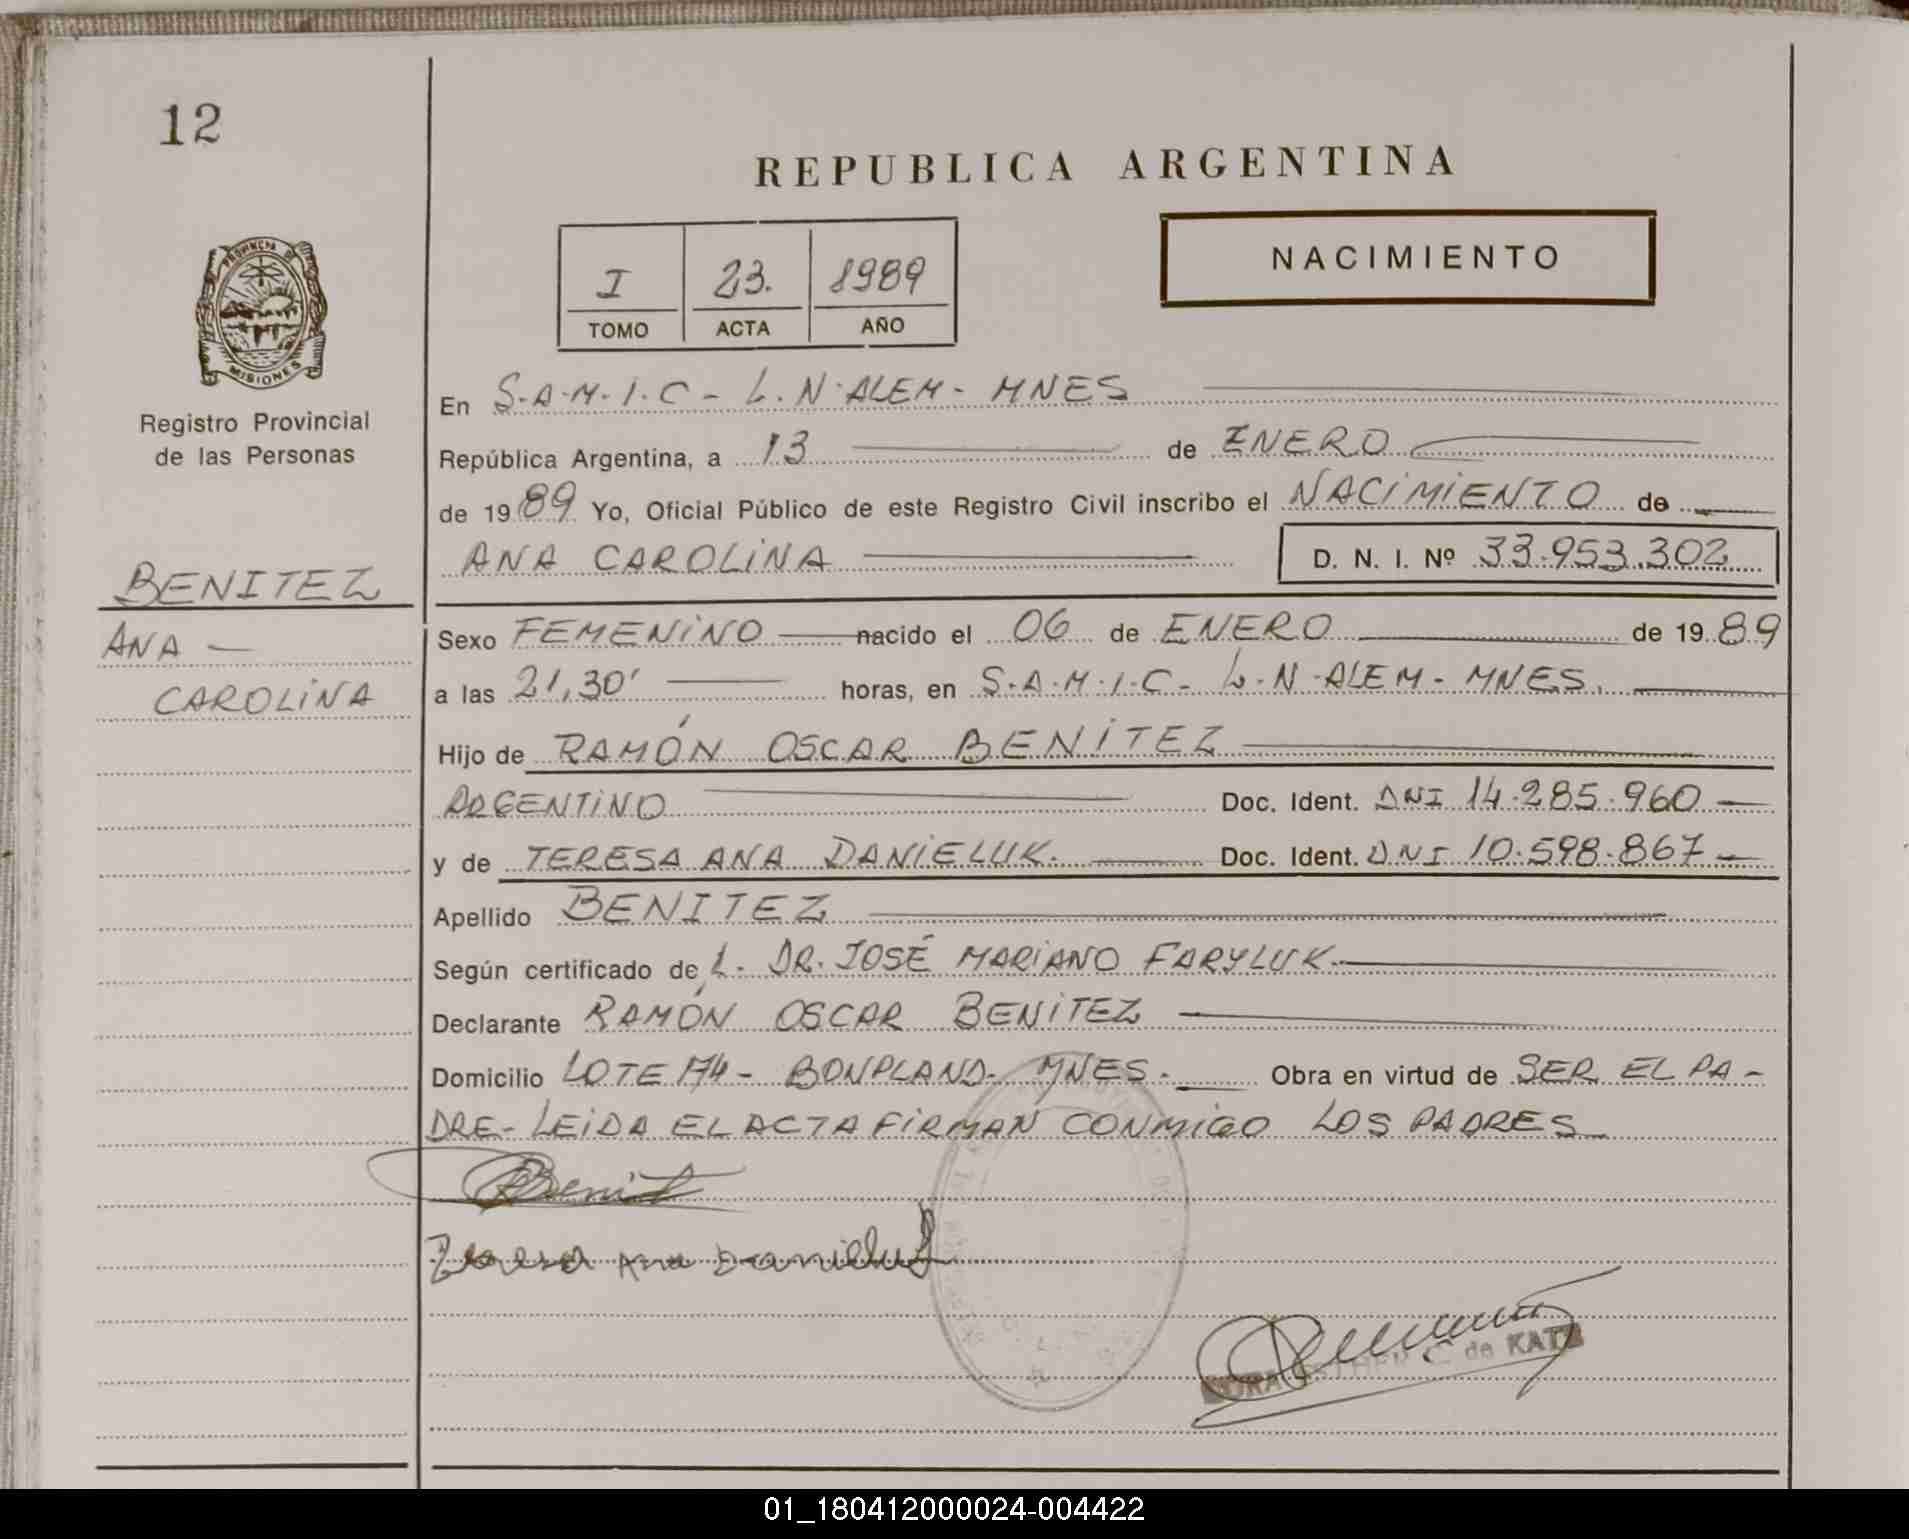 12
REPUBLICA ARGENTINA
NACIMIENTO
I 23. 1989
TOMO ACTA AÑO
PROVINCIA DE
MISIONES
Registro Provincial
de las Personas
BENITEZ
ANA —
CAROLINA
En S.A.M.I.C - L.N.ALEM - MNES
República Argentina, a 13 de ENERO
de 1989 Yo, Oficial Público de este Registro Civil inscribo el NACIMIENTO de
ANA CAROLINA D. N. I. Nº 33.953.302
Sexo FEMENINO nacido el 06 de ENERO de 1989
a las 21,30' horas, en S.A.M.I.C - L.N.ALEM - MNES.
Hijo de RAMÓN OSCAR BENITEZ
ARGENTINO Doc. Ident. DNI 14.285.960 —
y de TERESA ANA DANIELUK. Doc. Ident. DNI 10.598.867 —
Apellido BENITEZ
Según certificado de L. DR. JOSÉ MARIANO FARYLUK.
Declarante RAMÓN OSCAR BENITEZ
Domicilio LOTE 174 - BONPLAND - MNES. Obra en virtud de SER EL PA-
DRE - LEIDA EL ACTA FIRMAN CONMIGO LOS PADRES
Benit
Teresa Ana Danieluk
ESTHER C. de KATZ
01_180412000024-004422